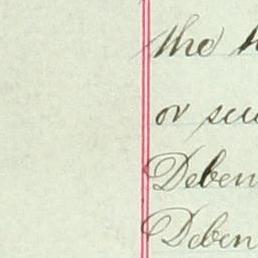 the
or
Deben
Deben